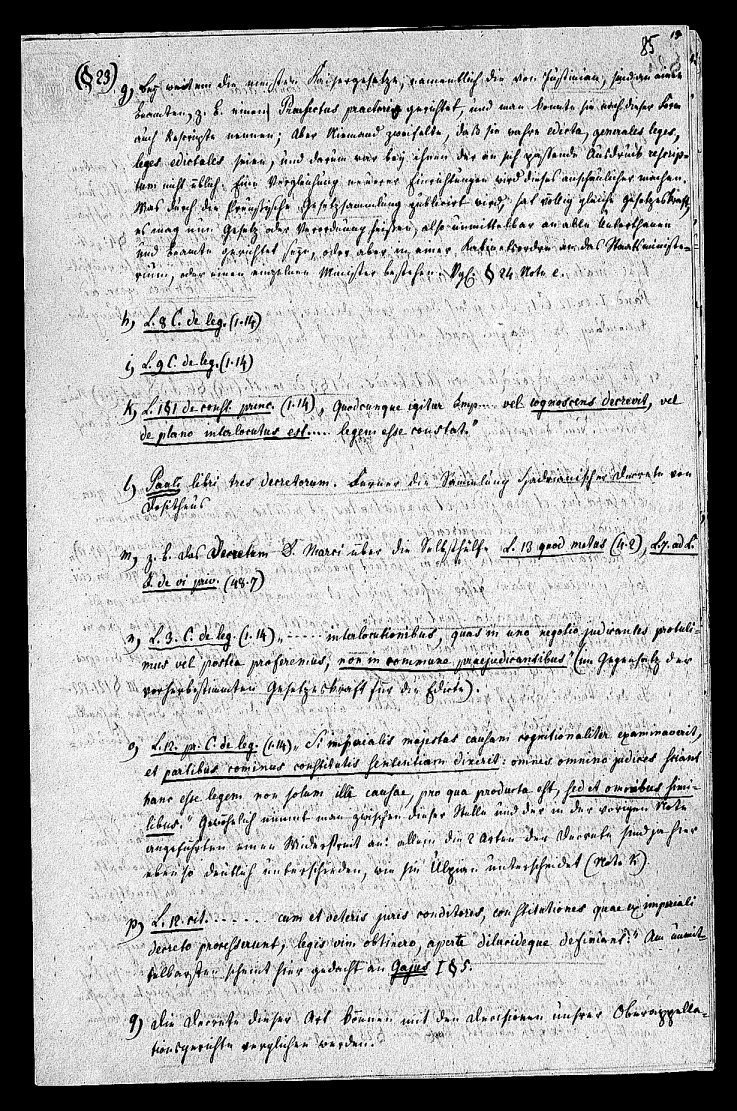 19
85
(§ 23)
g) Bey weitem die meisten Kaisergesetze, namentlich die von Justinian, sind an einen
beamten, z. B. einen Praefectus praetorio gerichtet, und man konnte sie nach dieser Form
auch Rescripte nennen; aber Niemand zweifelte, daß sie wahre edicta, generales leges,
leges edictales seien, und darum war bey ihnen der an sich passende Ausdruck rescrip-
tum nicht üblich. Eine Vergleichung neuerer Einrichtungen wird dieses anschaulicher machen.
Was durch die Preußische Gesetzsammlung publicirt wird, hat völlig gleiche Gesetzeskraft,
es mag nun Gesetz oder Verordnung heißen, also unmittelbar an alle Unterthanen
und Beamte gerichtet seyn, oder aber in einer Kabinetsordre an das Staatsministe-
rium, oder einen einzelnen Minister bestehen. Vgl. § 24. Note e.
h) L. 8 C. de leg. (1. 14)
i) L. 9 C. de leg. (1. 14)
k) L. 1 § 1 de const. princ. (1. 14) „Quodcunque igitur Imp.... vel cognoscens decrevit, vel
de plano interlocutus est .... legem esse constat."
l) Pauli libri tres decretorum. Ferner die Sammlung Hadrianischer Decrete von
Dositheus
m) z. B. das Decretum D. Marci über die Selbsthülfe L. 13 quod metus (4. 2), L. 7. ad L.
J. de vi priv. (48. 7)
n) L. 3. C. de leg. (1. 14) „ ..... interlocutionibus, quas in uno negotio judicantes protuli-
mus vel postea proferemus, non in commune praejudicantibus" (im Gegensatz der
vorherbestimmten Gesetzeskraft für die Edicte).
o) L. 12. pr. C. de leg. (1. 14) „Si imperialis majestas causam cognitionaliter examinaverit,
et partibus cominus constitutis sententiam dixerit: omnes omnino judices sciant
hanc esse legem non solum illi causae, pro qua producta est, sed et omnibus simi-
libus." Gewöhnlich nimmt man zwischen dieser Stelle und der in der vorigen Note
angeführten einen Widerstreit an: allein die 2 Arten der Decrete sind ja hier
ebenso deutlich unterschieden, wie sie Ulpian unterscheidet (Note k)
p) L. 12 cit. ...... cum et veteris juris conditores, constitutiones quae ex imperiali
decreto processerunt, legis vim obtinere, aperte dilucideque definiant." Am unmit-
telbarsten scheint hier gedacht an Gajus I § 5.
q) Die Decrete dieser Art können mit den Decisionen unsrer Oberappella-
tionsgerichte verglichen werden.